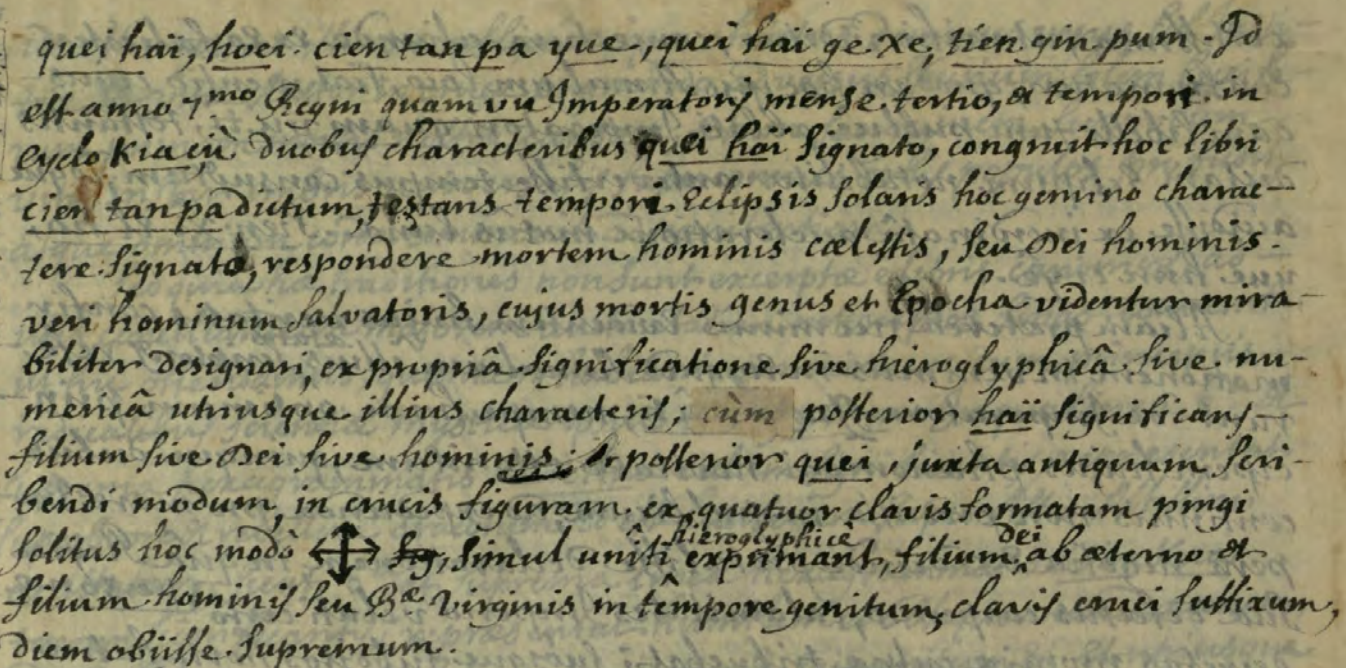 quei haï, hoei cien tan pa yue, quei haï ge Xe, tien gin pum. Id
est anno 7.mo Regni quam vu Imperatoris mense tertio, et tempori in
cyclo Kia çu duobus characteribus quei haï signato, congruit hoc libri
cien tan pa dictum, testans tempori Eclipsis solaris hoc gemino charac-
tere signato, respondere mortem hominis cœlestis, seu Dei hominis
veri hominum salvatoris, cujus mortis genus et Epocha videntur mira-
biliter designari, ex propriâ significatione sive hieroglyphicâ sive nu-
mericâ utriusque illius characteris; cùm posterior haï significans
filium sive Dei sive hominis; posterior quei, juxta antiquum scri-
bendi modum, in crucis figuram ex quatuor clavis formatam pingi
solitus hoc modò simul uniti hieroglyphicê exprimant, filium dei ab æterno et
filium hominis seu Bæ Virginis in têmpore genitum, clavis cruci suffixum,
diem obiisse supremum.